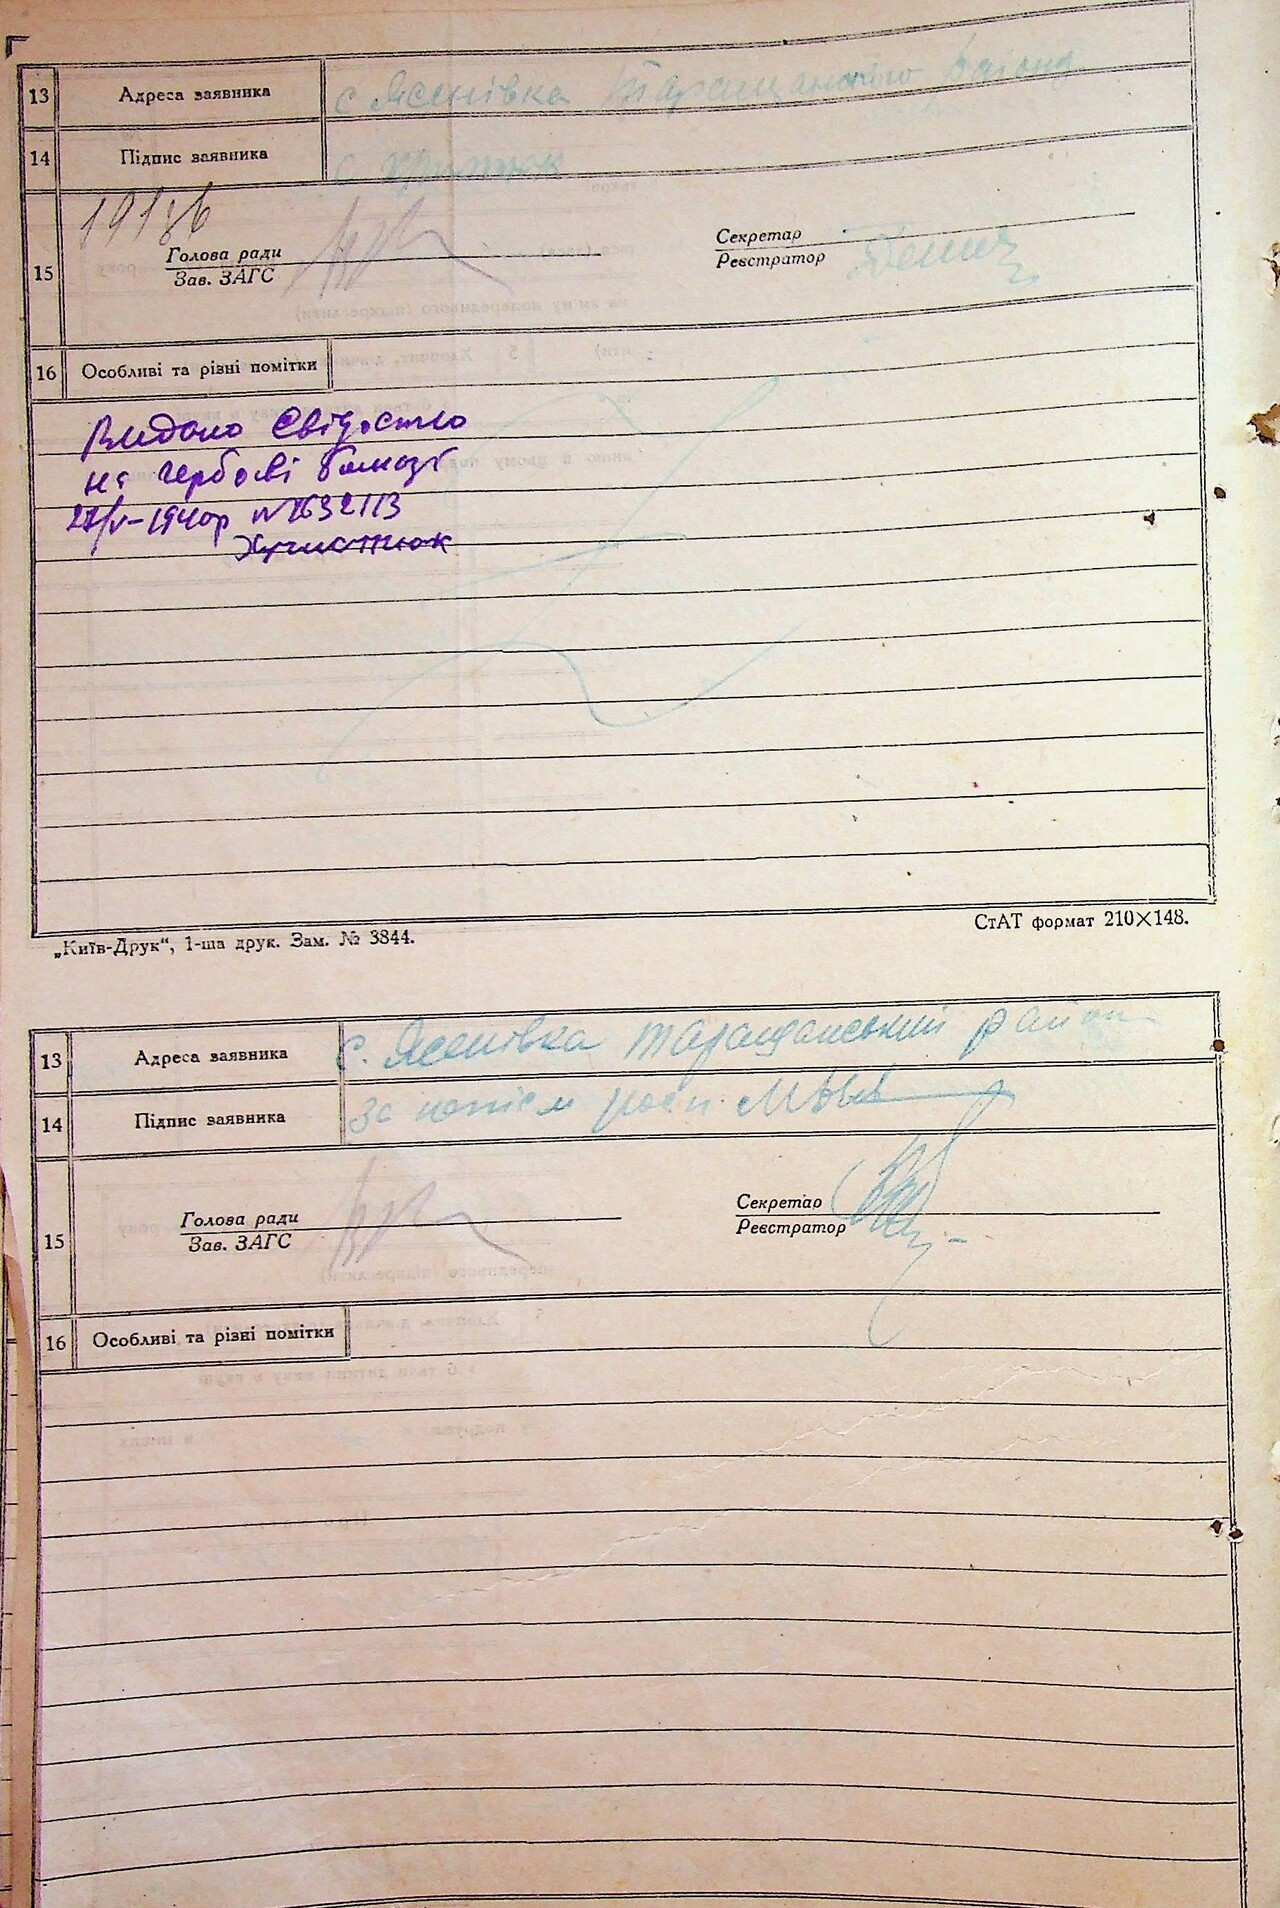 13 Адреса заявника с Ясенівка Таращанського району
14 Підпис заявника
15 Голова ради Секретар
Зав. ЗАГС Реєстратор
16 Особливі та різні помітки
Видано Свідоство
на гербові бомазі
27/V-1940р № 2632113
„Київ-Друк“, 1-ша друк. Зам. № 3844. СтАТ формат 210×148.
13 Адреса заявника с. Ясенівка Таращанський район
14 Підпис заявника
15 Голова ради Секретар
Зав. ЗАГС Реєстратор
16 Особливі та різні помітки